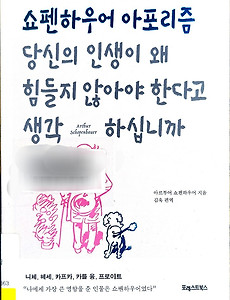 쇼펜하우어 아포리즘
당신의 인생이 왜
힘들지 않아야 한다고
생각 Arthur Schopenhauer 하십니까
아르투어 쇼펜하우어 지음
김욱 편역
니체, 헤세, 카프카, 카를 융, 프로이트
“나에게 가장 큰 영향을 준 인물은 쇼펜하우어였다”
포레스트북스